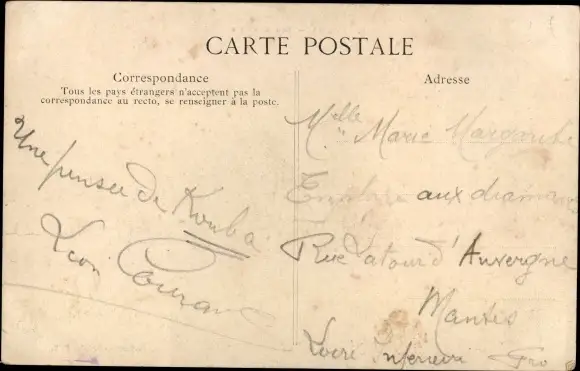 CARTE POSTALE
Correspondance
Tous les pays étrangers n'acceptent pas la
correspondance au recto, se renseigner à la poste.
Une pensée de Kouba
Léon
Adresse
Melle Marie
aux
Rue Latour d'Auvergne
Nantes
Loire Inferieure